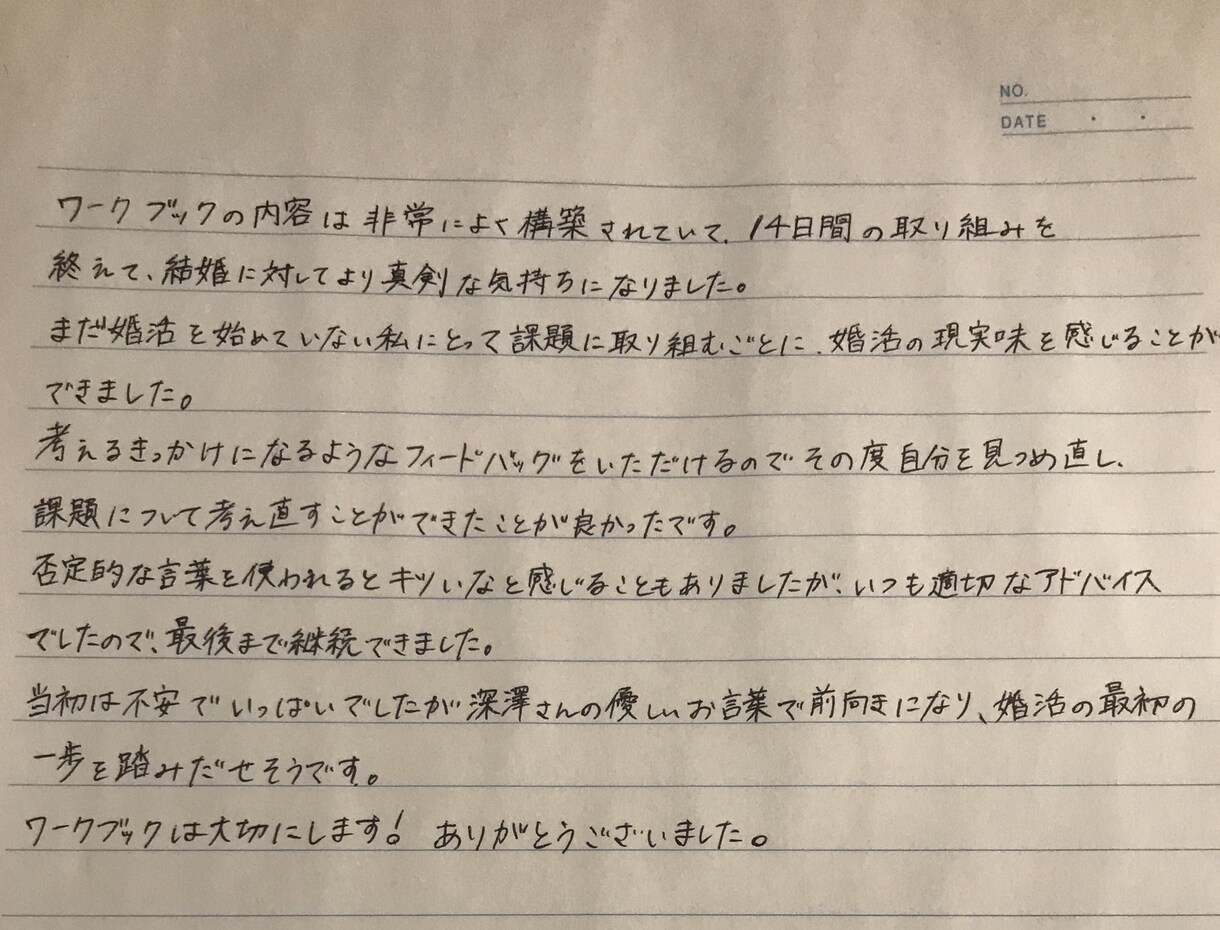 NO.
DATE ・ ・
ワークブックの内容は非常によく構築されていて、14日間の取り組みを
終えて、結婚に対してより真剣な気持ちになりました。
まだ婚活を始めていない私にとって課題に取り組むごとに、婚活の現実味を感じることが
できました。
考えるきっかけになるようなフィードバッグをいただけるのでその度自分を見つめ直し、
課題について考え直すことができたことが良かったです。
否定的な言葉を使われるとキツいなと感じることもありましたが、いつも適切なアドバイス
でしたので、最後まで継続できました。
当初は不安でいっぱいでしたが深澤さんの優しいお言葉で前向きになり、婚活の最初の
一歩を踏みだせそうです。
ワークブックは大切にします! ありがとうございました。